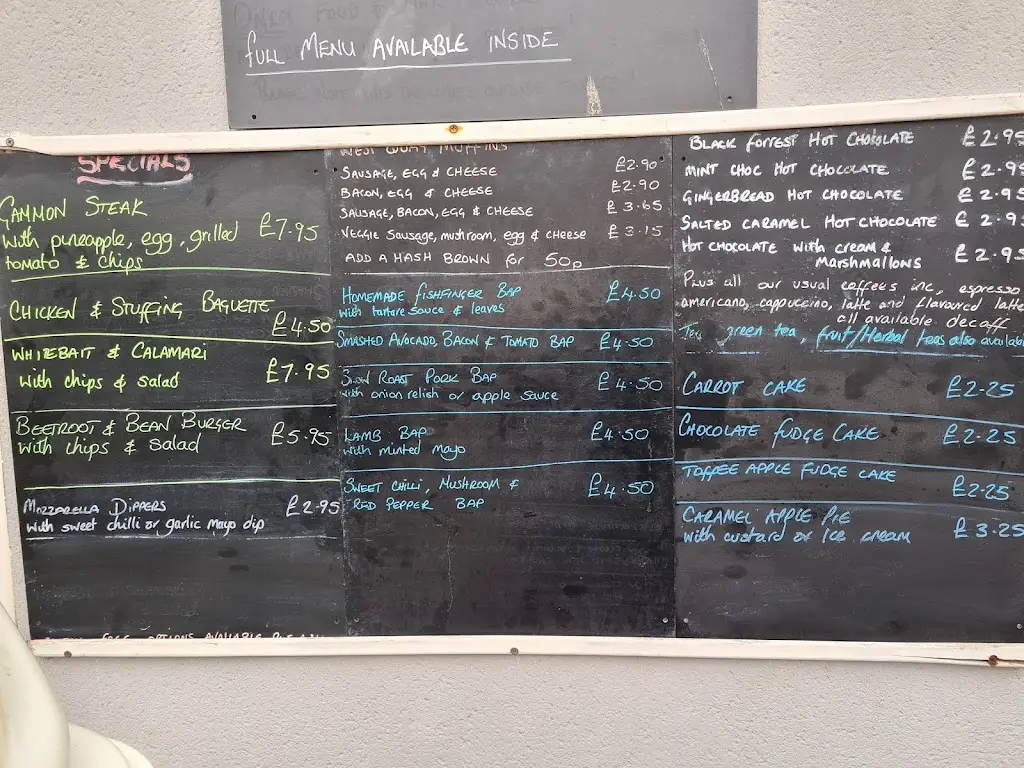 FULL MENU AVAILABLE INSIDE
SPECIALS
GAMMON STEAK
with pineapple, egg, grilled £7.95
tomato & chips
CHICKEN & STUFFING BAGUETTE
£4.50
WHITEBAIT & CALAMARI
with chips & salad £7.95
BEETROOT & BEAN BURGER £5.95
with chips & salad
MOZZARELLA DIPPERS £2.95
with sweet chilli or garlic mayo dip
OPTIONS AVAILABLE
WEST QUAY MUFFINS
SAUSAGE, EGG & CHEESE £2.90
BACON, EGG & CHEESE £2.90
SAUSAGE, BACON, EGG & CHEESE £3.65
VEGGIE SAUSAGE, mushroom, egg & cheese £3.15
ADD A HASH BROWN for 50p
HOMEMADE FISHFINGER BAP £4.50
with tartare sauce & leaves
SMASHED AVOCADO, BACON & TOMATO BAP £4.50
SLOW ROAST PORK BAP £4.50
with onion relish or apple sauce
LAMB BAP £4.50
with minted mayo
SWEET CHILLI, MUSHROOM & £4.50
RED PEPPER BAP
BLACK FORREST HOT CHOCOLATE £2.95
MINT CHOC HOT CHOCOLATE £2.95
GINGERBREAD HOT CHOCOLATE £2.95
SALTED CARAMEL HOT CHOCOLATE £2.95
HOT CHOCOLATE with cream & £2.95
MARSHMALLONS
Plus all our usual coffees inc, espresso
americano, cappuccino, latte and flavoured latte
all available decaff
Tea, green tea, fruit/Herbal teas also available
CARROT CAKE £2.25
CHOCOLATE FUDGE CAKE £2.25
TOFFEE APPLE FUDGE CAKE
£2.25
CARAMEL APPLE PIE
with custard or ice cream £3.25